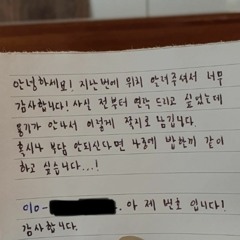 안녕하세요! 지난번에 위치 안려주셔서 너무
감사합니다! 사실 전부터 연락 드리고 싶었는데
용기가 안나서 이렇게 쪽지로 남깁니다.
혹시나 부담 안되신다면 나중에 밥한끼 같이
하고 싶습니다...!
010-
. 아 제 번호 입니다!
감사합니다.